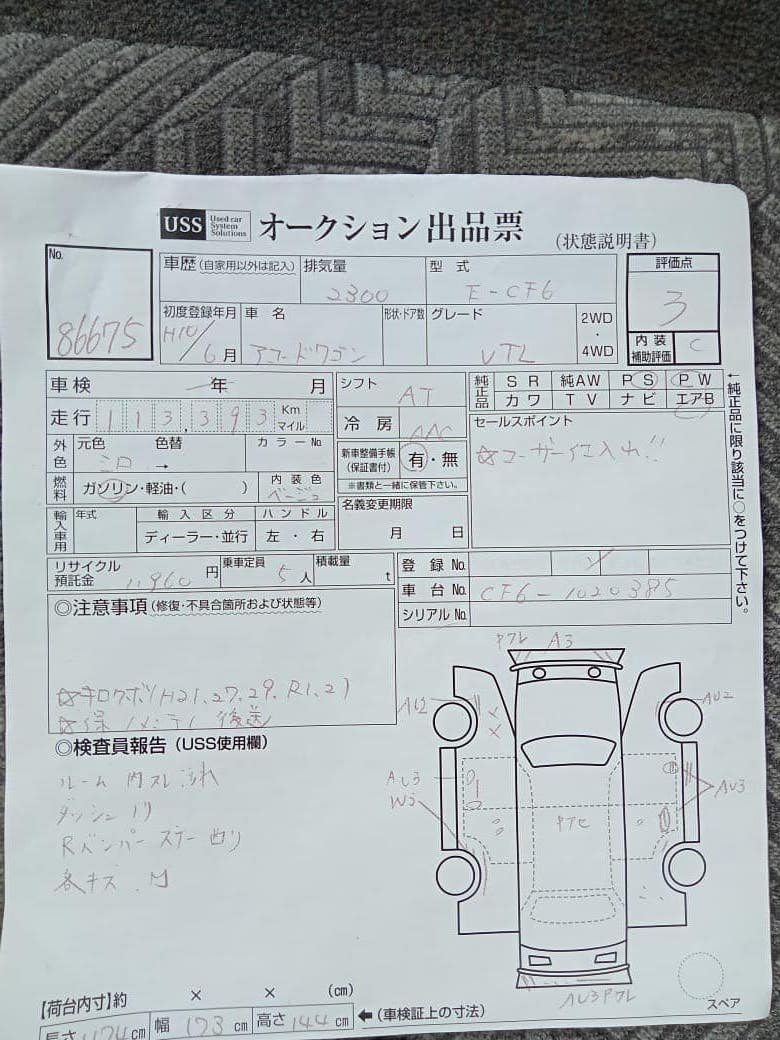 USS Used car System Solutions オークション出品票 (状態説明書)
No. 86675
車歴 (自家用以外は記入) 排気量 2300 型式 E-CF6
評価点 3
初度登録年月 H10/6月 車名 アコードワゴン 形状・ドア数 グレード VTL 2WD・4WD
内装補助評価 C
車検 年 月 シフト AT
純正品 SR 純AW PS PW
カワ TV ナビ エアB
走行 113,393 Km マイル 冷房 AAC
セールスポイント
☆ユーザー仕入れ!!
外色 元色 シロ 色替 → カラーNo.
新車整備手帳 (保証書付) 有・無
※書類と一緒に保管下さい。
燃料 ガソリン・軽油・( ) 内装色 ベージュ
名義変更期限 月 日
輸入車用 年式 輸入区分 ハンドル
ディーラー・並行 左・右
←純正品に限り該当に○をつけて下さい。
リサイクル預託金 11,960円 乗車定員 5人 積載量 t
登録No.
車台No. CF6-1020385
シリアルNo.
◎注意事項 (修復・不具合箇所および状態等)
☆キロクボ(H21.27.29.R1.2)
☆保/メンテ/後送
◎検査員報告 (USS使用欄)
ルーム内スレ汚れ
ダッシュ
Rバンパーステー曲り
各キズ
A3
AU2
AU2
AU3
W3
AU3
AU3
スペア
【荷台内寸】約 × × (cm)
長さ 474cm 幅 173cm 高さ 144cm ←(車検証上の寸法)